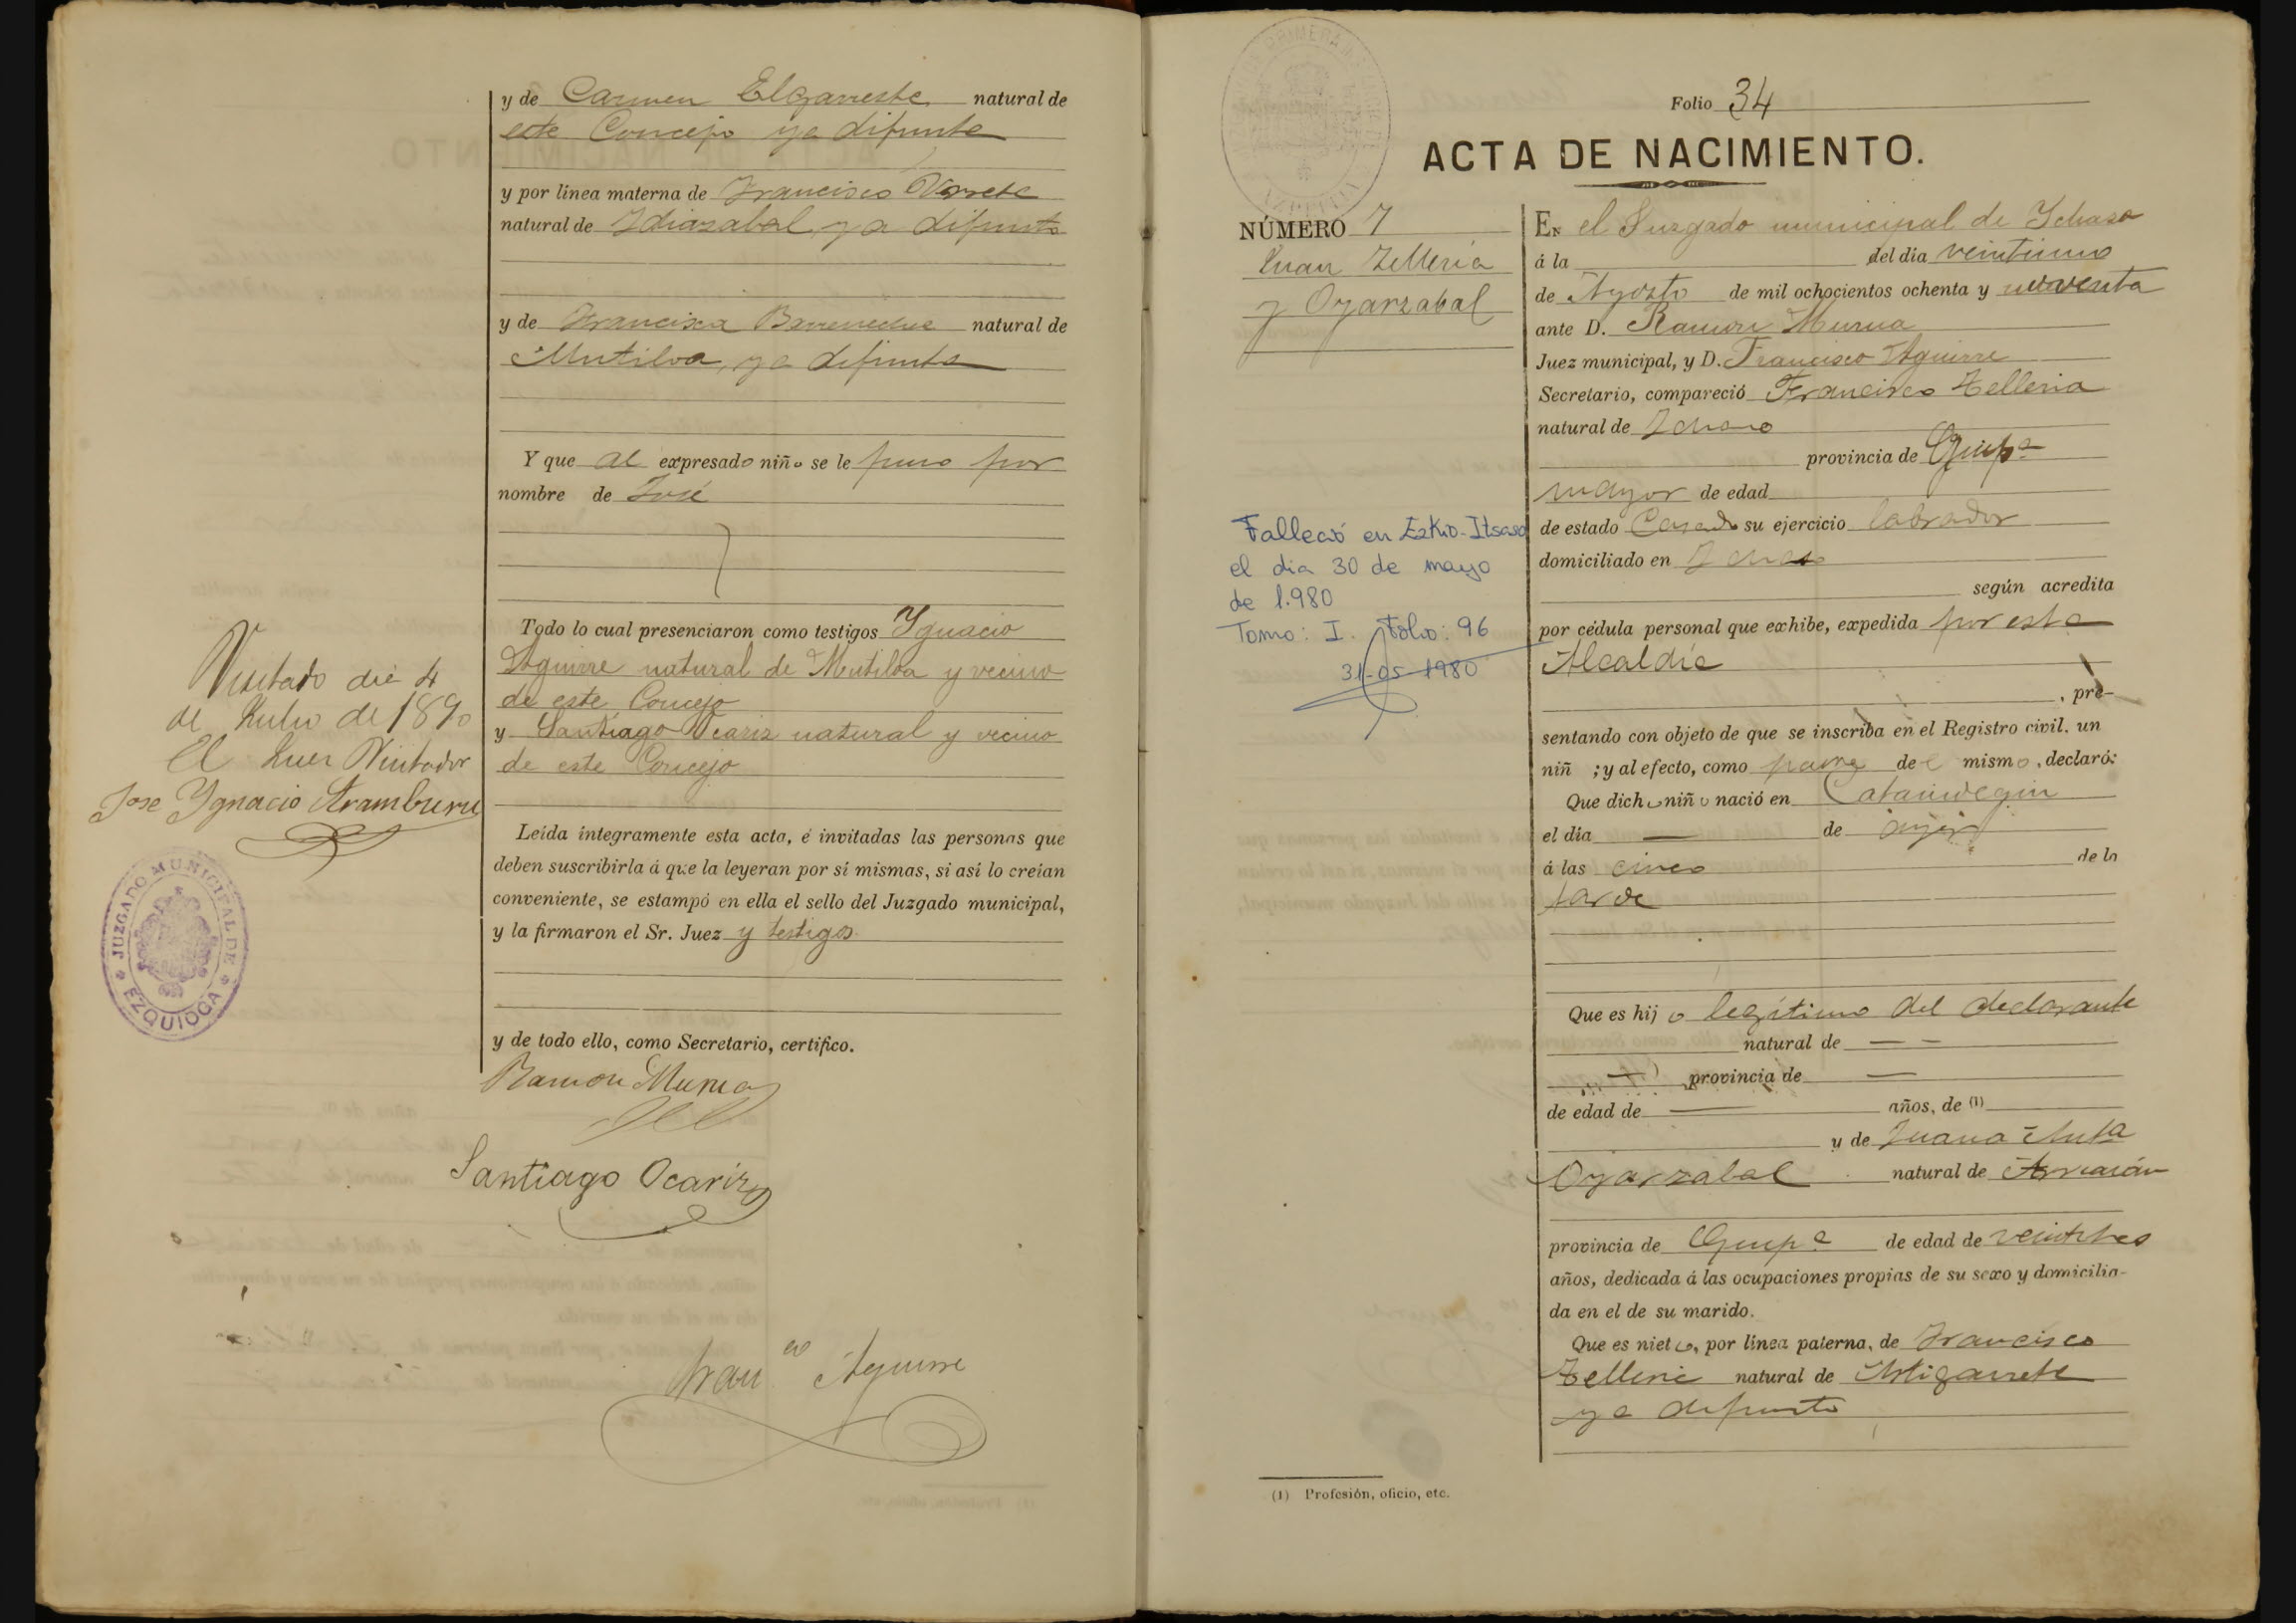 y de Carmen Elgarreste natural de
este Concejo ya difunta
y por línea materna de Francisco
natural de Idiazabal, ya difunto
y de Francisca natural de
Mutiloa, ya difunta
Y que al expresado niño se le puso por
nombre de José
Todo lo cual presenciaron como testigos Ygnacio
Aguirre natural de Mutiloa y vecino
de este Concejo
y Santiago Ocariz natural y vecino
de este Concejo
Visitado dia 4
de Julio de 1890
El Juez Visitador
Jose Ygnacio Aramburu
Leída íntegramente esta acta, é invitadas las personas que
deben suscribirla á que la leyeran por sí mismas, si así lo creían
conveniente, se estampó en ella el sello del Juzgado municipal,
y la firmaron el Sr. Juez y testigos
JUZGADO MUNICIPAL DE
EZQUIOGA
y de todo ello, como Secretario, certifico.
Ramon Murua
Santiago Ocariz
Fran.co Aguirre
Folio 34
ACTA DE NACIMIENTO.
NÚMERO 7
Juan Telleria
y Oyarzabal
Falleció en Ezkio-Itsaso
el dia 30 de mayo
de 1.980
Tomo: I. Folio: 96
31-05-1980
EN el Juzgado municipal de Ychaso
á la del dia veintiuno
de Agosto de mil ochocientos ochenta y noventa
ante D. Ramon Murua
Juez municipal, y D. Francisco Aguirre
Secretario, compareció Francisco Telleria
natural de Ichaso
provincia de Guip.a
mayor de edad
de estado Casado su ejercicio labrador
domiciliado en Ichaso
según acredita
por cédula personal que exhibe, expedida por esta
Alcaldía
, pre-
sentando con objeto de que se inscriba en el Registro civil. un
niñ ; y al efecto, como padre de l mismo, declaró:
Que dicho niño nació en
el día — de ayer
á las cinco de la
tarde
Que es hijo legítimo del declarante
natural de — —
— provincia de —
de edad de — años, de (1)
y de Juana
Oyarzabal natural de
provincia de Guip.a de edad de veintitres
años, dedicada á las ocupaciones propias de su sexo y domicilia-
da en el de su marido.
Que es nieto, por línea paterna, de Francisco
Telleria natural de Astigarreta
ya difunto
(1) Profesión, oficio, etc.